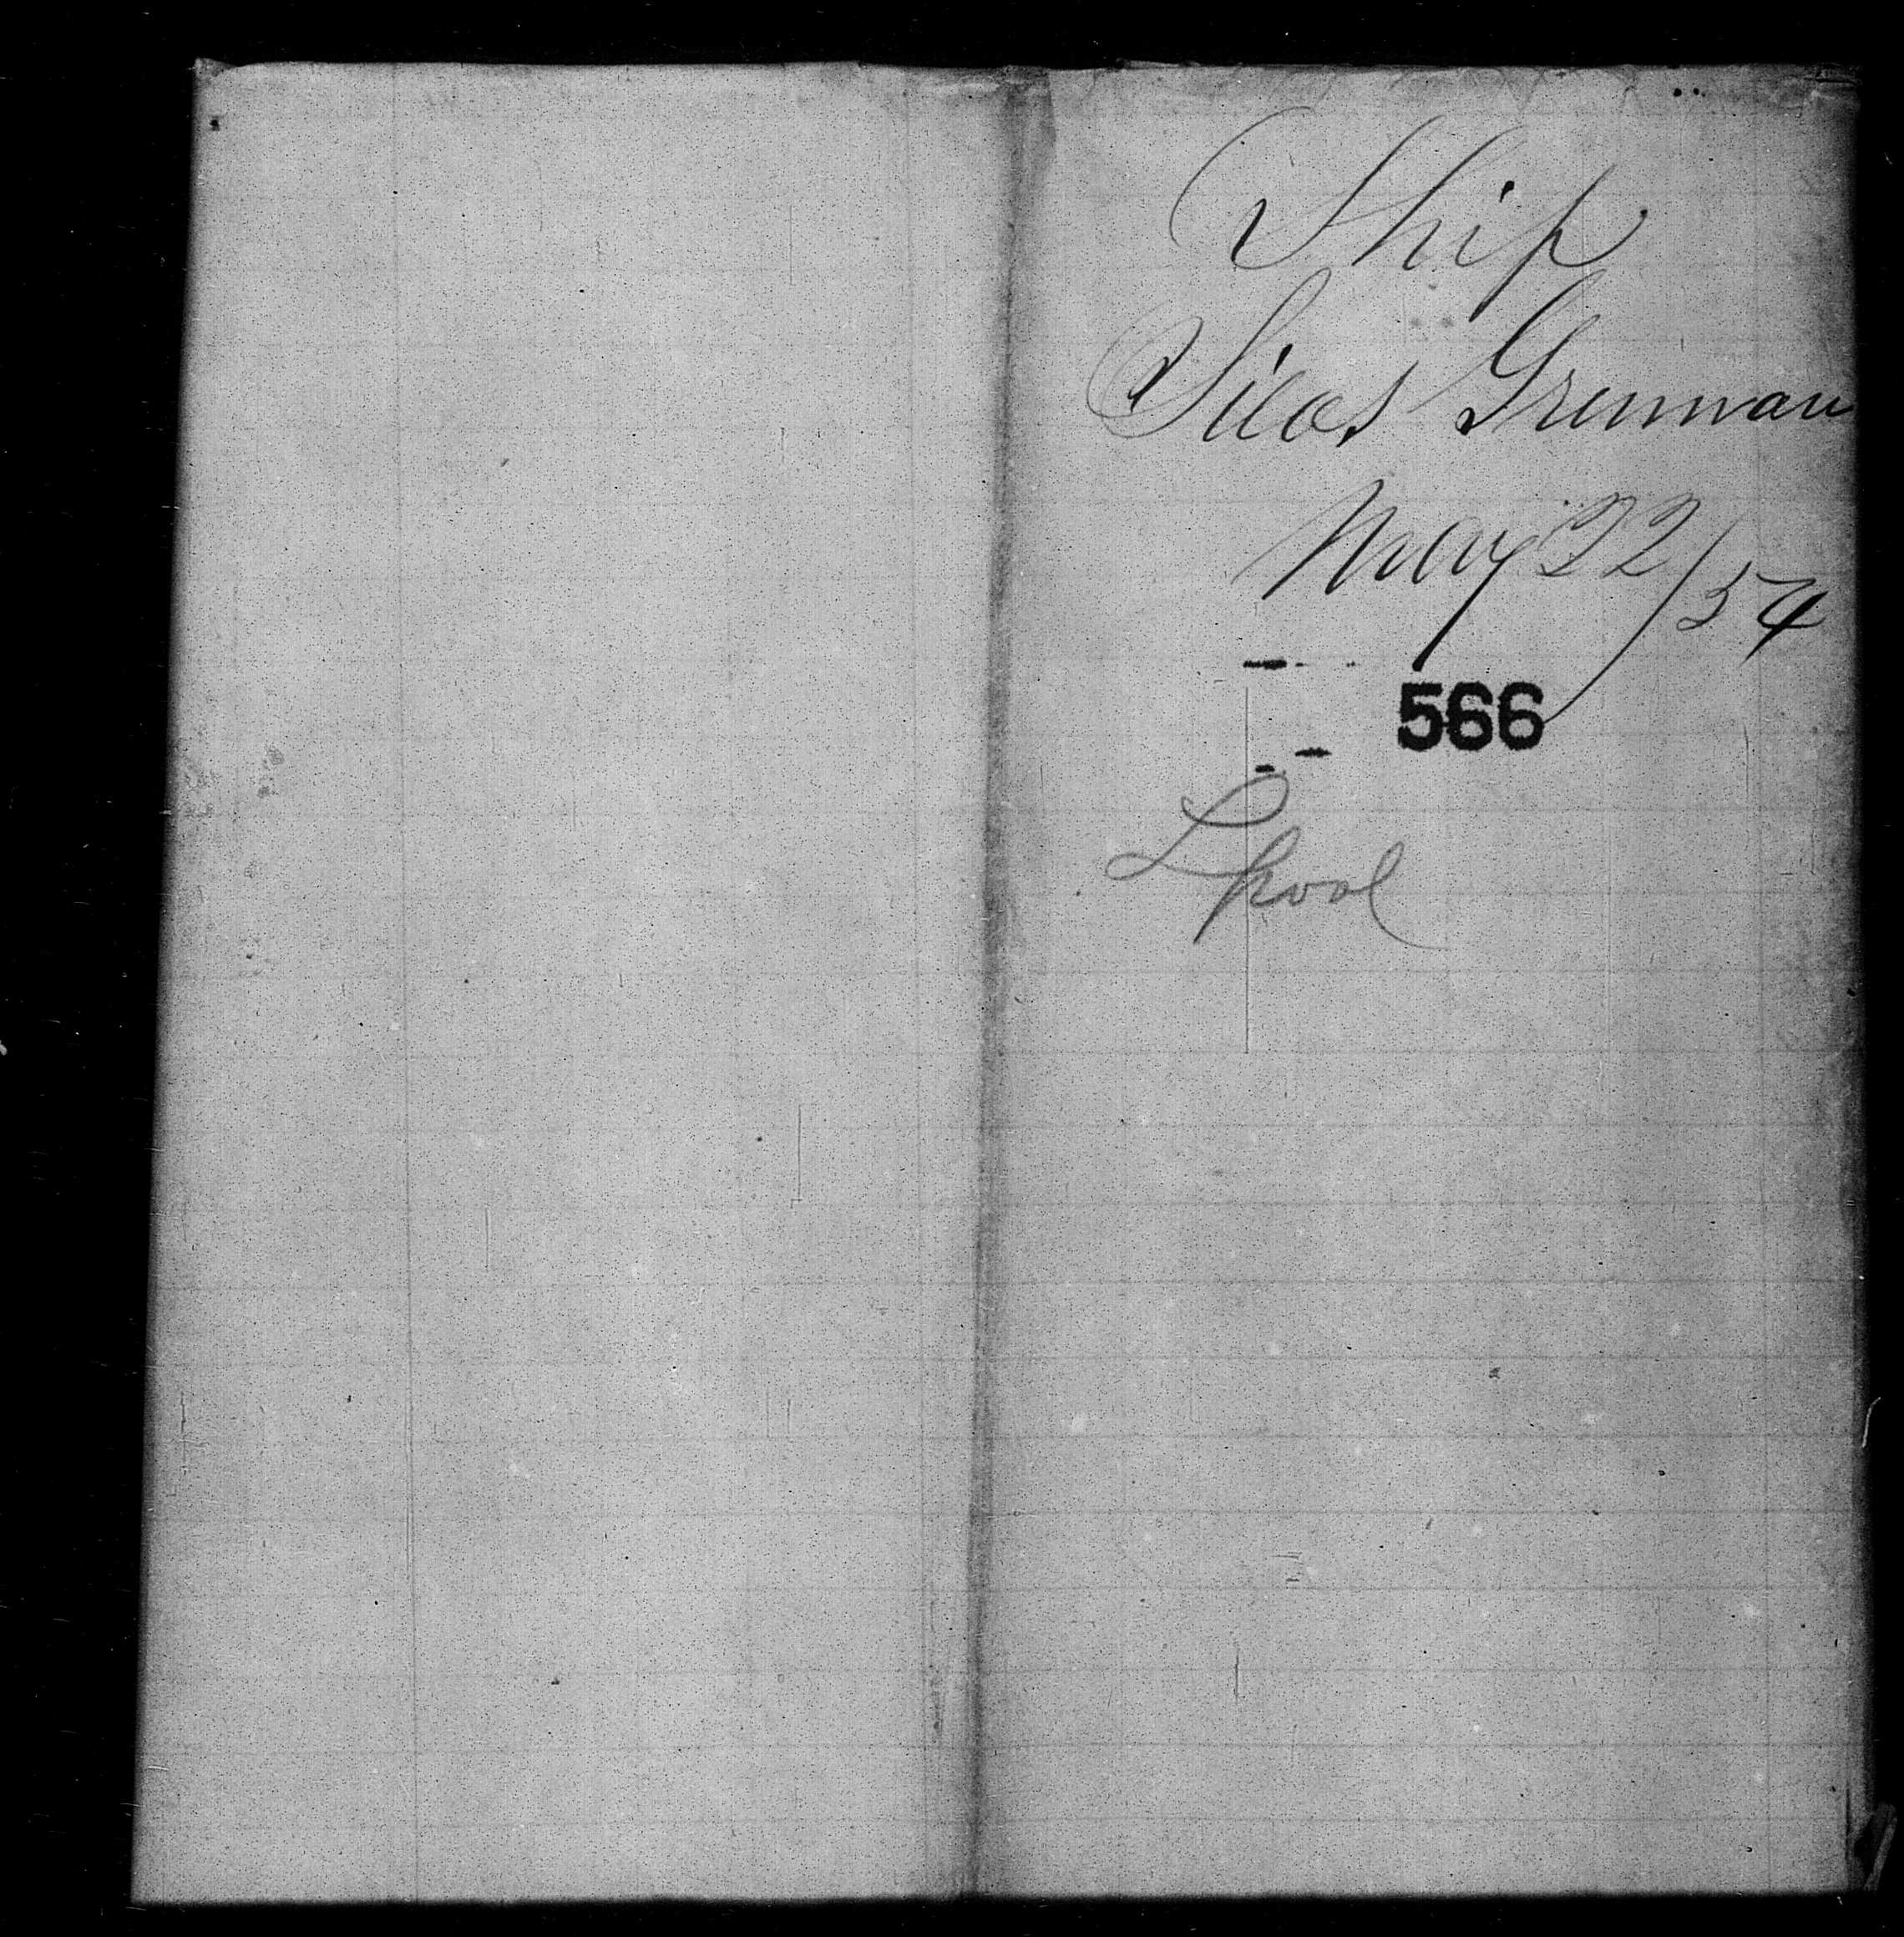 Ship
Silas Greenman
May 22/54
566
Lpool